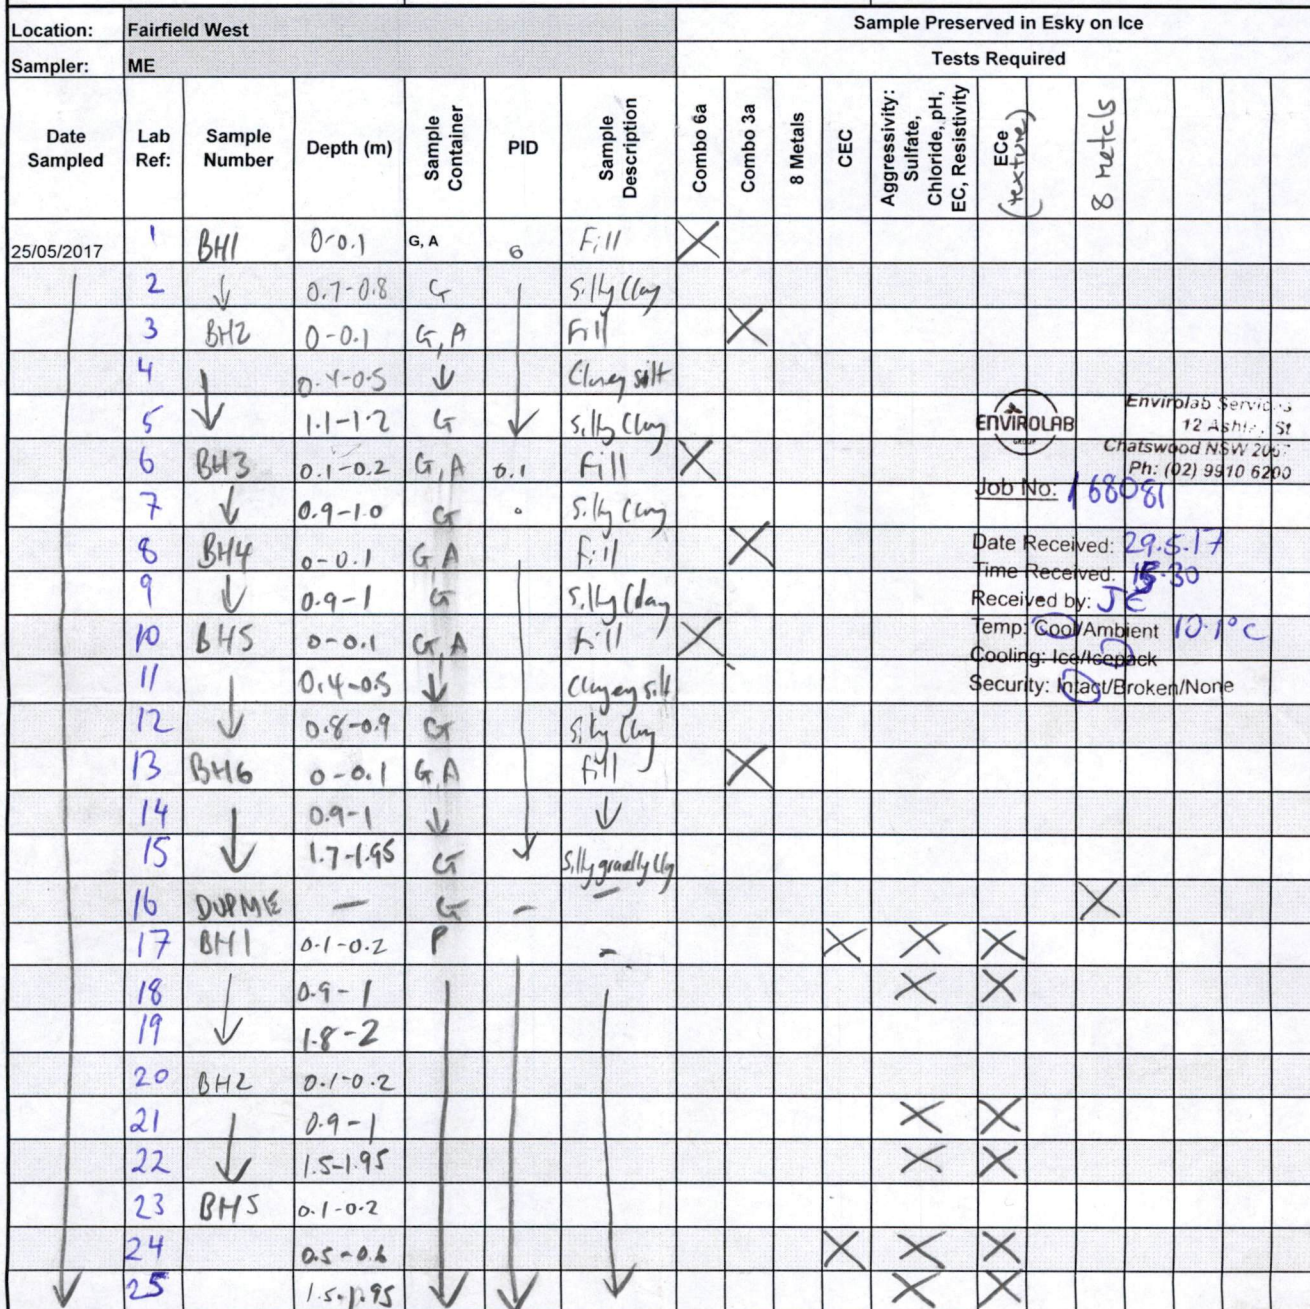 Location: Fairfield West Sample Preserved in Esky on Ice
Sampler: ME Tests Required
Date Sampled Lab Ref: Sample Number Depth (m) Sample Container PID Sample Description Combo 6a Combo 3a 8 Metals CEC Aggressivity: Sulfate, Chloride, pH, EC, Resistivity ECe (texture) 8 Metals
25/05/2017 1 BH1 0-0.1 G, A Fill X
2 ↓ 0.7-0.8 G Silty Clay
3 BH2 0-0.1 G, A Fill X
4 0.4-0.5 ↓ Clayey silt
5 ↓ 1.1-1.2 G ↓ Silty Clay
6 BH3 0.1-0.2 G, A 0.1 Fill X
7 ↓ 0.9-1.0 G Silty Clay
8 BH4 0-0.1 G, A Fill X
9 ↓ 0.9-1 G Silty Clay
10 BH5 0-0.1 G, A Fill X
11 0.4-0.5 ↓ Clayey silt
12 ↓ 0.8-0.9 G Silty Clay
13 BH6 0-0.1 G, A Fill X
14 0.9-1 ↓ ↓
15 ↓ 1.7-1.95 G ↓ Silty gravelly Clay
16 DUPME - G - - X
17 BH1 0.1-0.2 P - X X X
18 0.9-1 X X
19 ↓ 1.8-2
20 BH2 0.1-0.2
21 0.9-1 X X
22 ↓ 1.5-1.95 X X
23 BH5 0.1-0.2
24 0.5-0.6 X X X
25 1.5-1.95 X X
ENVIROLAB GROUP
Envirolab Services
12 Ashley St
Chatswood NSW 2067
Ph: (02) 9910 6200
Job No: 168081
Date Received: 29.5.17
Time Received: 15.30
Received by: JE
Temp: Cool/Ambient 10.1°C
Cooling: Ice/Icepack
Security: Intact/Broken/None